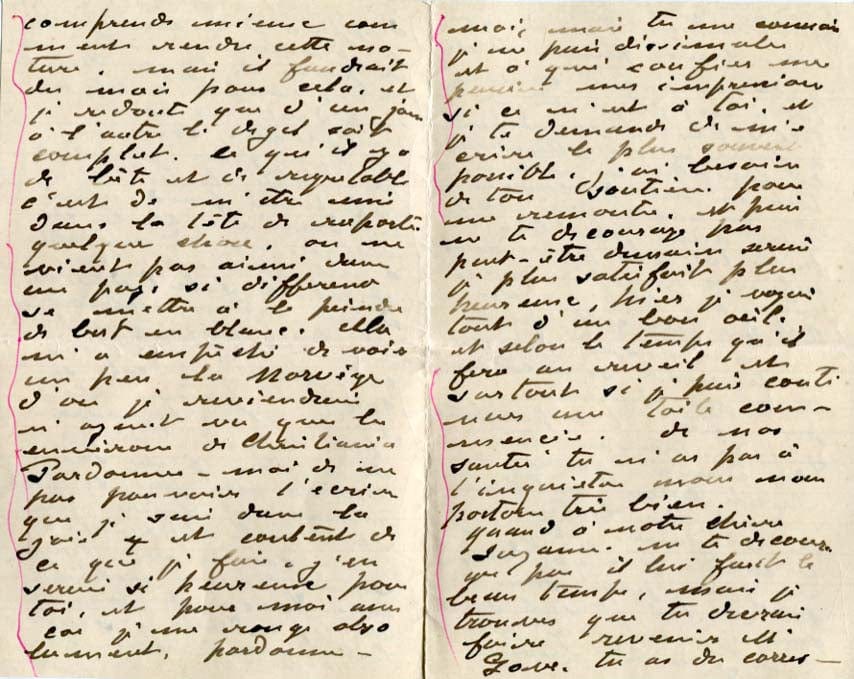 comprends mieux com
ment rendre cette na-
ture. mais il faudrait
des mois pour cela. et
je redoute que d'un jour
à l'autre le degel soit
complet. ce qu'il y a
de bête et de regretable
c'est de m'être mis
dans la tête de rapporter
quelque chose. on ne
vient pas ainsi dans
un pays si different
se mettre à le peindre
de but en blanc. cela
m'a empêché de voir
un peu la Norvège
d'ou je reviendrai
n'ayant vu que les
environs de Christiania
Pardonne-moi de ne
pas pouvoir t'ecrire
que je suis dans la
joie et content de
ce que je fais, j'en
serais si heureux pour
toi, et pour moi aussi
car je me ronge abso
lument. pardonne-
moi, mais tu me connais
je ne puis dissimuler
et à qui confier mes
peines mes impressions
si ce n'est à toi. et
je te demande de m'é
crire le plus souvent
possible. j'ai besoin
de ton soutien pour
me remonter. et puis
ne te decourage pas
peut-être demain serai
je plus satisfait plus
heureux, hier je voyais
tout d'un bon oeil.
et selon le temps qu'il
fera au reveil et
surtout si je puis conti
nuer une toile com-
mencée. de nos
santés tu n'as pas à
t'inquieter nous nous
portons très bien.
quand à notre chère
Suzanne. ne te decoura
ge pas il lui faut le
beau temps, mais je
trouve que tu devrais
faire revenir Mr
tu as du corres-